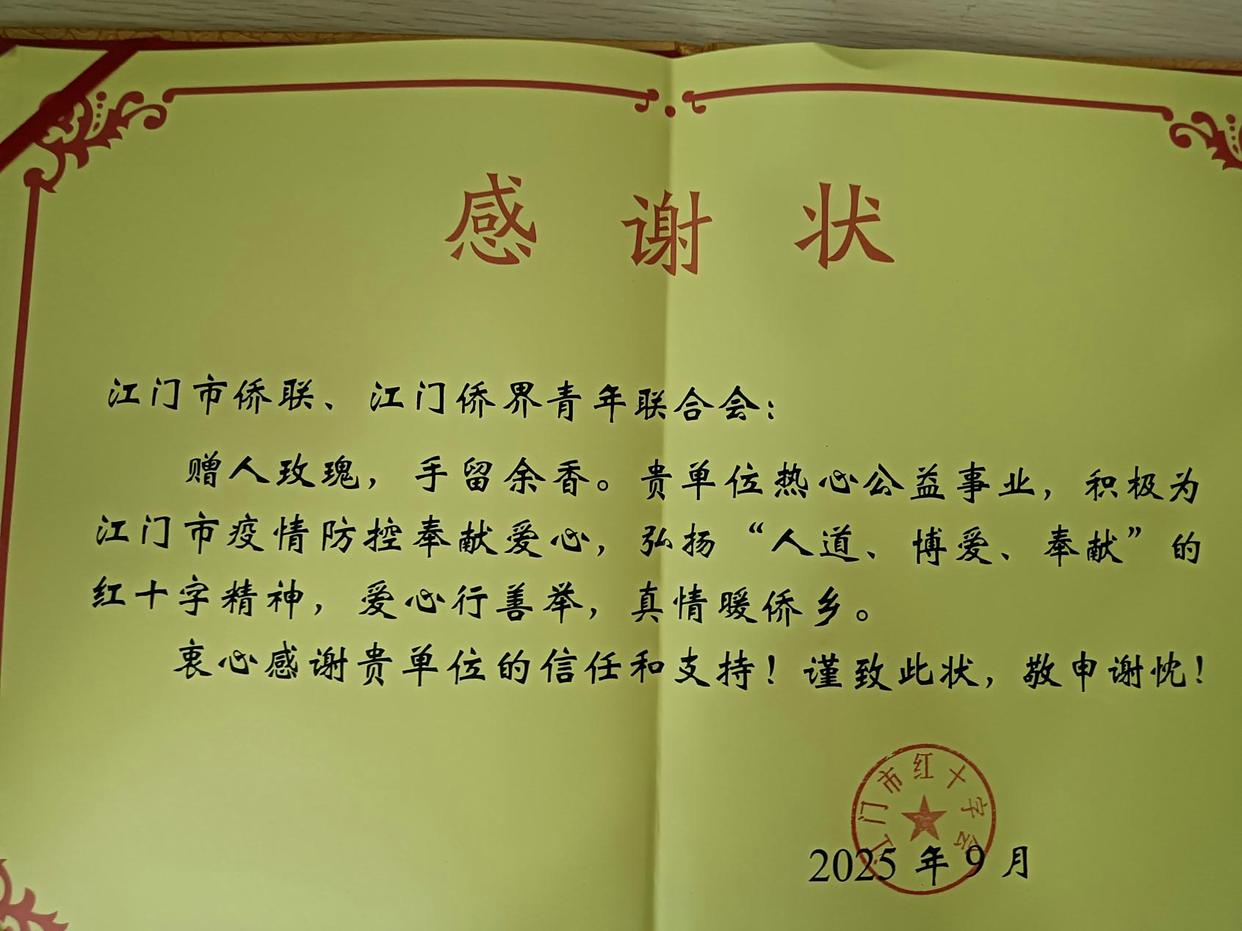 感谢状
江门市侨联、江门侨界青年联合会：
赠人玫瑰，手留余香。贵单位热心公益事业，积极为
江门市疫情防控奉献爱心，弘扬“人道、博爱、奉献”的
红十字精神，爱心行善举，真情暖侨乡。
衷心感谢贵单位的信任和支持！谨致此状，敬申谢忱！
江门市红十字会
2025年9月